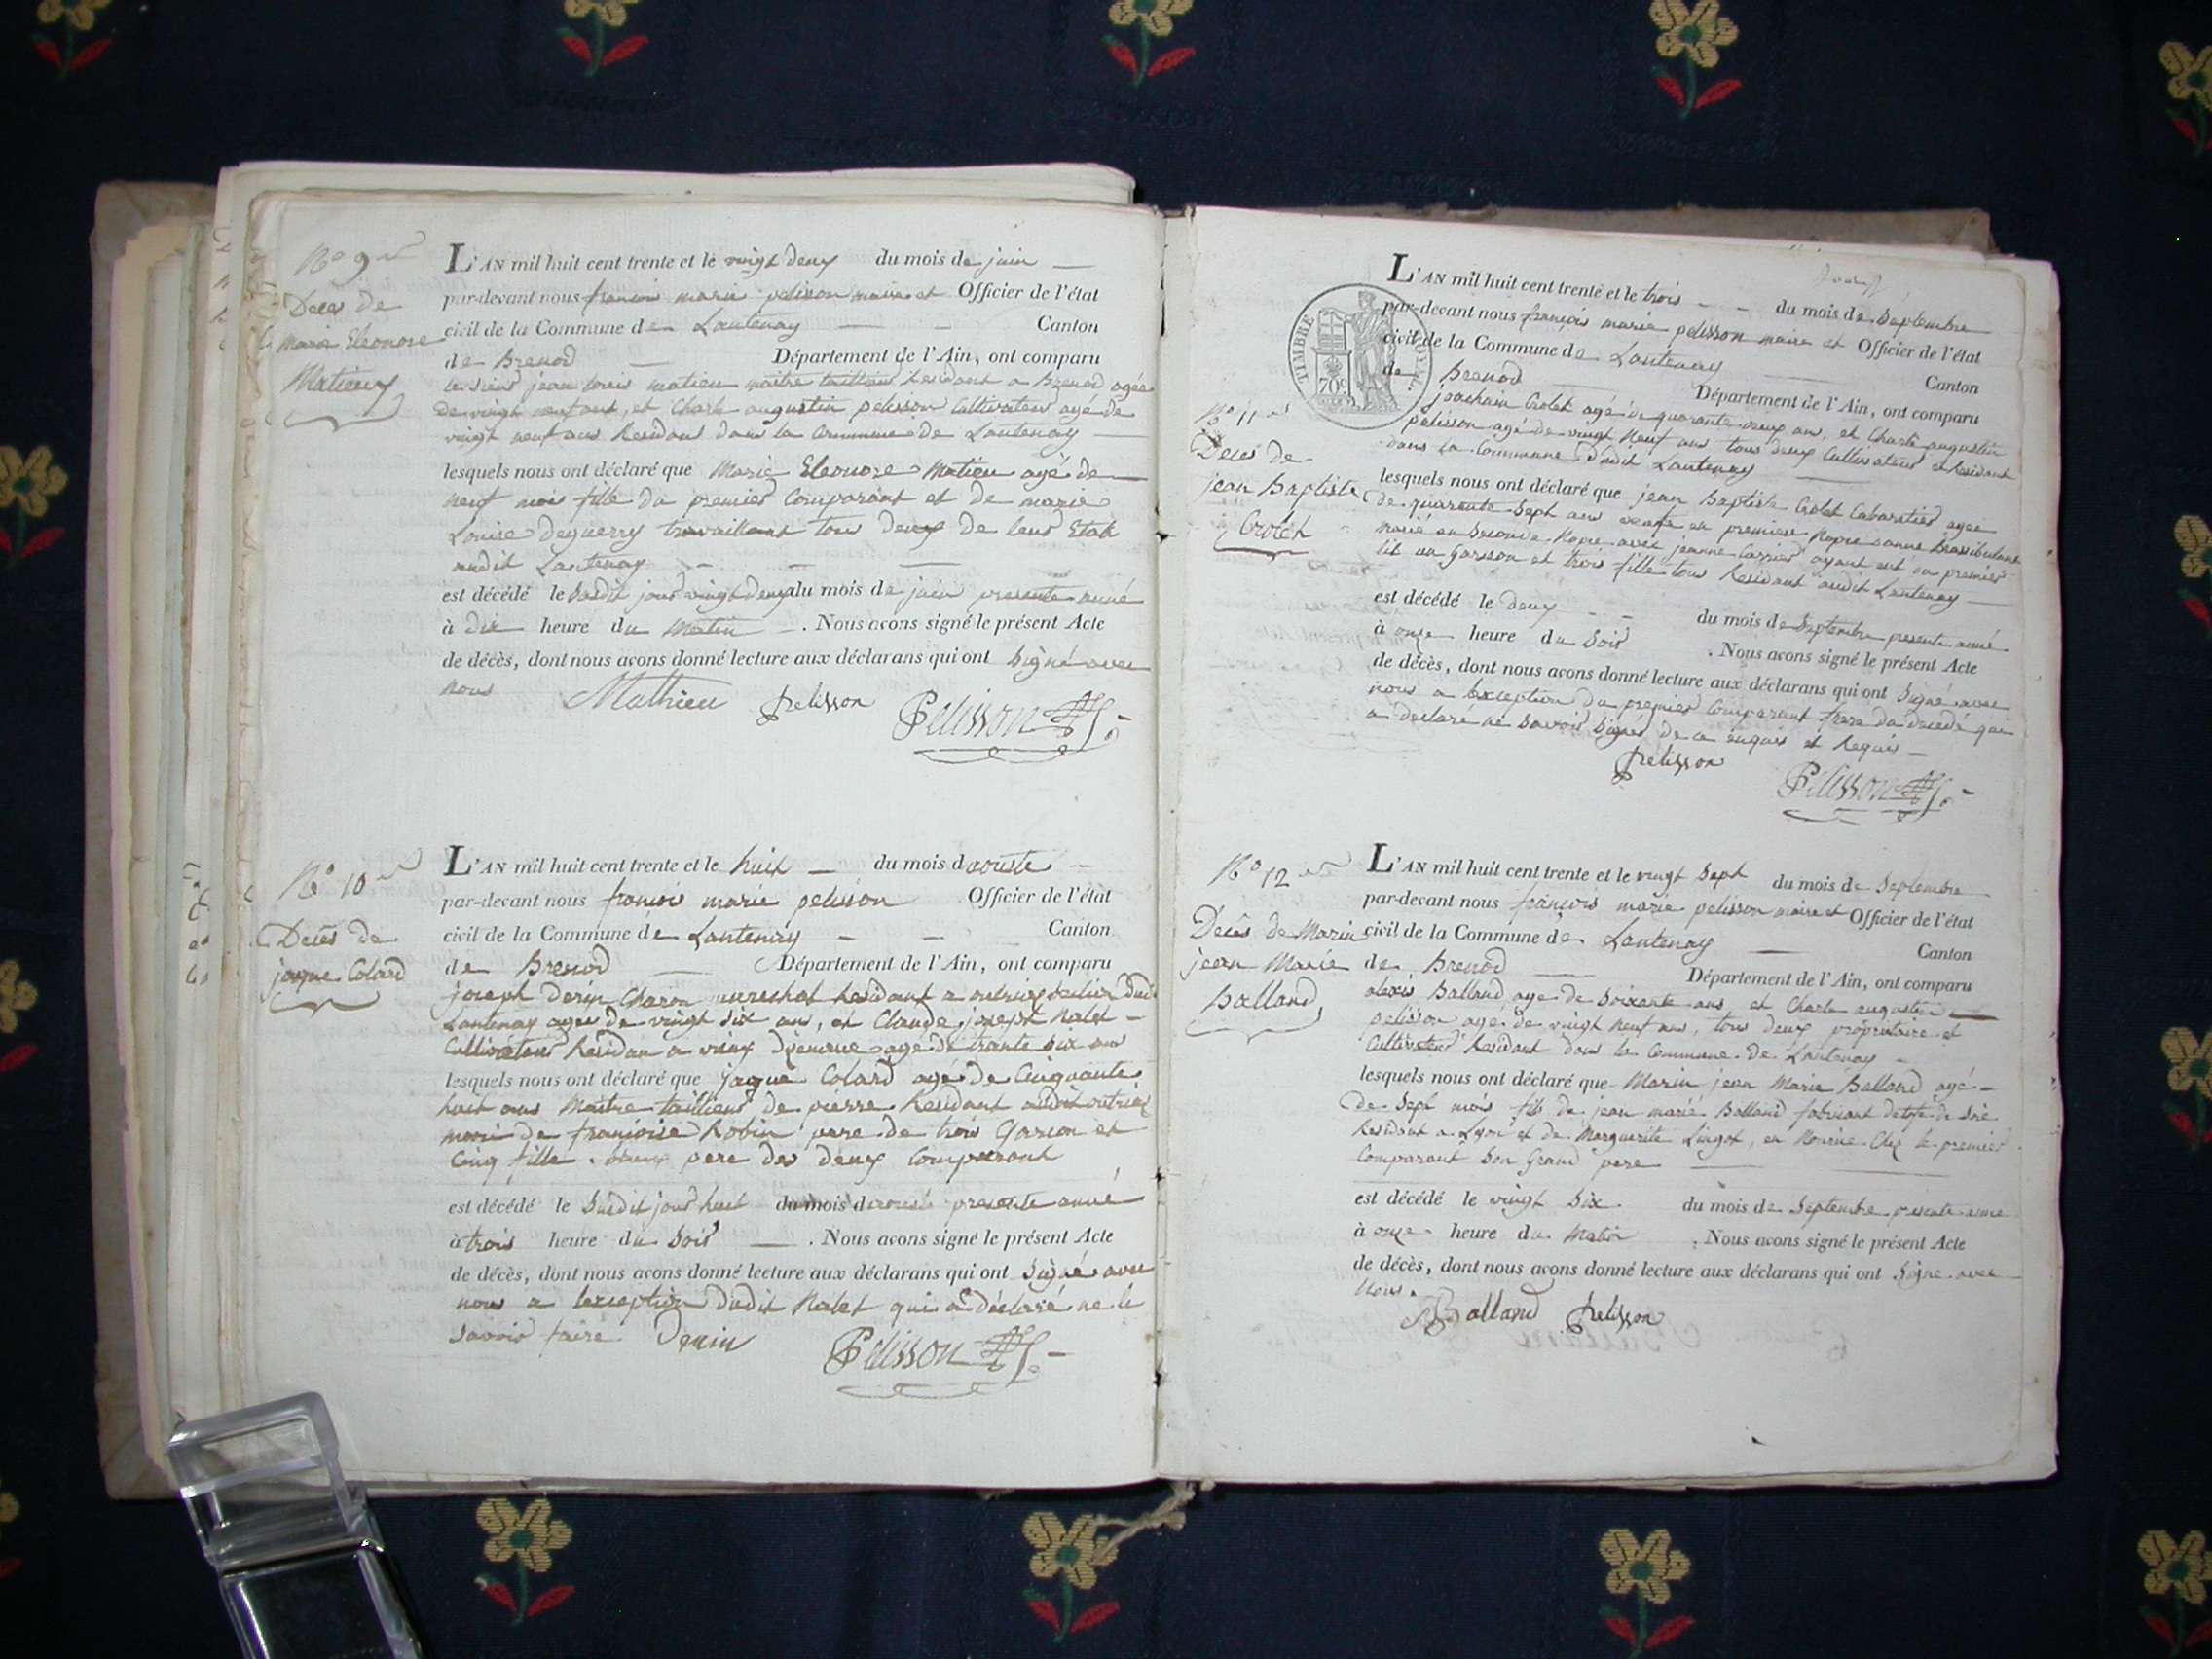 No 9
Deces de
Marie Eleonore
Matieu
L'AN mil huit cent trente et le vingt deux du mois de juin
par-devant nous francois marie pelisson maire et Officier de l'état
civil de la Commune de Lantenay Canton
de Brenod Département de l'Ain, ont comparu
le sieur jean louis matieu maitre tailleur Residant a Brenod agée
de vingt neuf ans, et Charle augustin pelisson Cultivateur agé de
vingt neuf ans Residans dans la Commune de Lantenay
lesquels nous ont déclaré que Marie Eleonore Matieu agé de
neuf mois fille du premier Comparant et de marie
Louise deguerry travaillant tous deux de leur Etat
audit Lantenay
est décédé le Susdit jour vingt deux du mois de juin presente anné
à dix heure du Matin . Nous avons signé le présent Acte
de décès, dont nous avons donné lecture aux déclarans qui ont Signé avec
nous Mathieu Pelisson Pelisson
No 10
Decès de
jaque Colard
L'AN mil huit cent trente et le huit du mois d'aouste
par-devant nous francois marie pelisson Officier de l'état
civil de la Commune de Lantenay Canton
de Brenod Département de l'Ain, ont comparu
joseph Charon marechal Residant a outriaz
Lantenay agée de vingt six ans, et Claude joseph Nalet
Cultivateur Residan a vieux agé de trante six ans
lesquels nous ont déclaré que jaque Colard agé de Cinquante
huit ans Maitre tailleur de pierre Residant audit outriaz
mari de francoise Robin pere de trois Garson et
Cinq fille, beau pere des deux Comparant
est décédé le Susdit jour huit du mois d'aouste presente anné
à trois heure du Soir . Nous avons signé le présent Acte
de décès, dont nous avons donné lecture aux déclarans qui ont Signé avec
nous a lexception dudit Nalet qui a déclaré ne le
Savoir faire Pelisson
TIMBRE ROYAL
70c
No 11
Deces de
jean Baptiste
Crolet
L'AN mil huit cent trente et le trois du mois de Septembre
par-devant nous françois marie pelisson maire et Officier de l'état
civil de la Commune de Lantenay Canton
de Brenod Département de l'Ain, ont comparu
joachain Crolet agé de quarante deux ans, et Charle augustin
pelisson agé de vingt Neuf ans tous deux Cultivateur et Residant
dans La Commune dudit Lantenay
lesquels nous ont déclaré que jean Baptiste Crolet Cabaratier agee
de quarante Sept ans veufe en premiere Nopce danne
marié en Seconde Nopce avec jeanne Carrier ayant eut du premier
lit un Garson et trois fille tous Residant audit Lantenay
est décédé le deux du mois de Septembre presente anné
à onze heure du Soir . Nous avons signé le présent Acte
de décès, dont nous avons donné lecture aux déclarans qui ont Signé avec
nous a lexception du premier Comparant frere du decedé qui
a declare ne Savoir Signer de ce enquis et Requis
Pelisson Pelisson
No 12
Decès de Marin
jean Marie
Balland
L'AN mil huit cent trente et le vingt Sept du mois de Septembre
par-devant nous françois marie pelisson maire et Officier de l'état
civil de la Commune de Lantenay Canton
de Brenod Département de l'Ain, ont comparu
alexis Balland age de Soixante ans et Charle augustin
pelisson agé de vingt Neuf ans, tous deux propriétaire et
Cultivateur Residant dans la Commune de Lantenay
lesquels nous ont déclaré que Marin jean Marie Balland agé
de Sept mois fils de jean marié Balland fabricant de
Residant a Lyon et de Marguerite Lingot, en Nourice Chez le premier
Comparant Son Grand pere
est décédé le vingt Six du mois de Septembre presente anne
à onze heure du Matin . Nous avons signé le présent Acte
de décès, dont nous avons donné lecture aux déclarans qui ont Signe avec
Nous.
Balland Pelisson